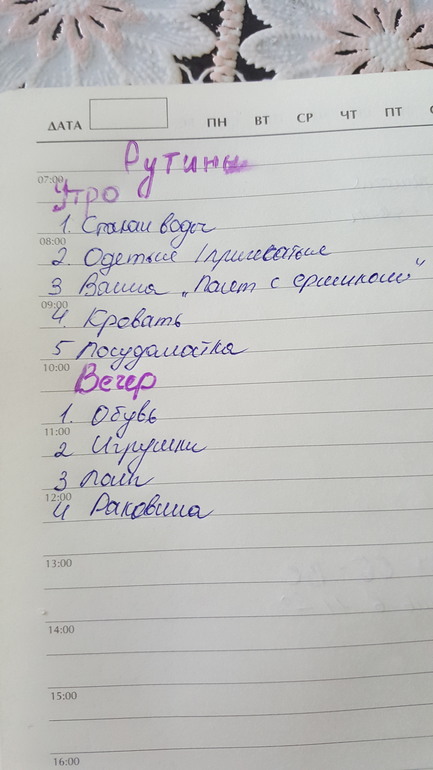 ДАТА ПН ВТ СР ЧТ ПТ С
Рутины
07:00
Утро
1. Стакан воды
08:00
2. Одеться / причесаться
3 Ванна „ с ёршиком"
09:00
4. Кровать
5 Посудомойка
10:00
Вечер
1. Обувь
11:00
2 Игрушки
3
12:00
4 Раковина
13:00
14:00
15:00
16:00